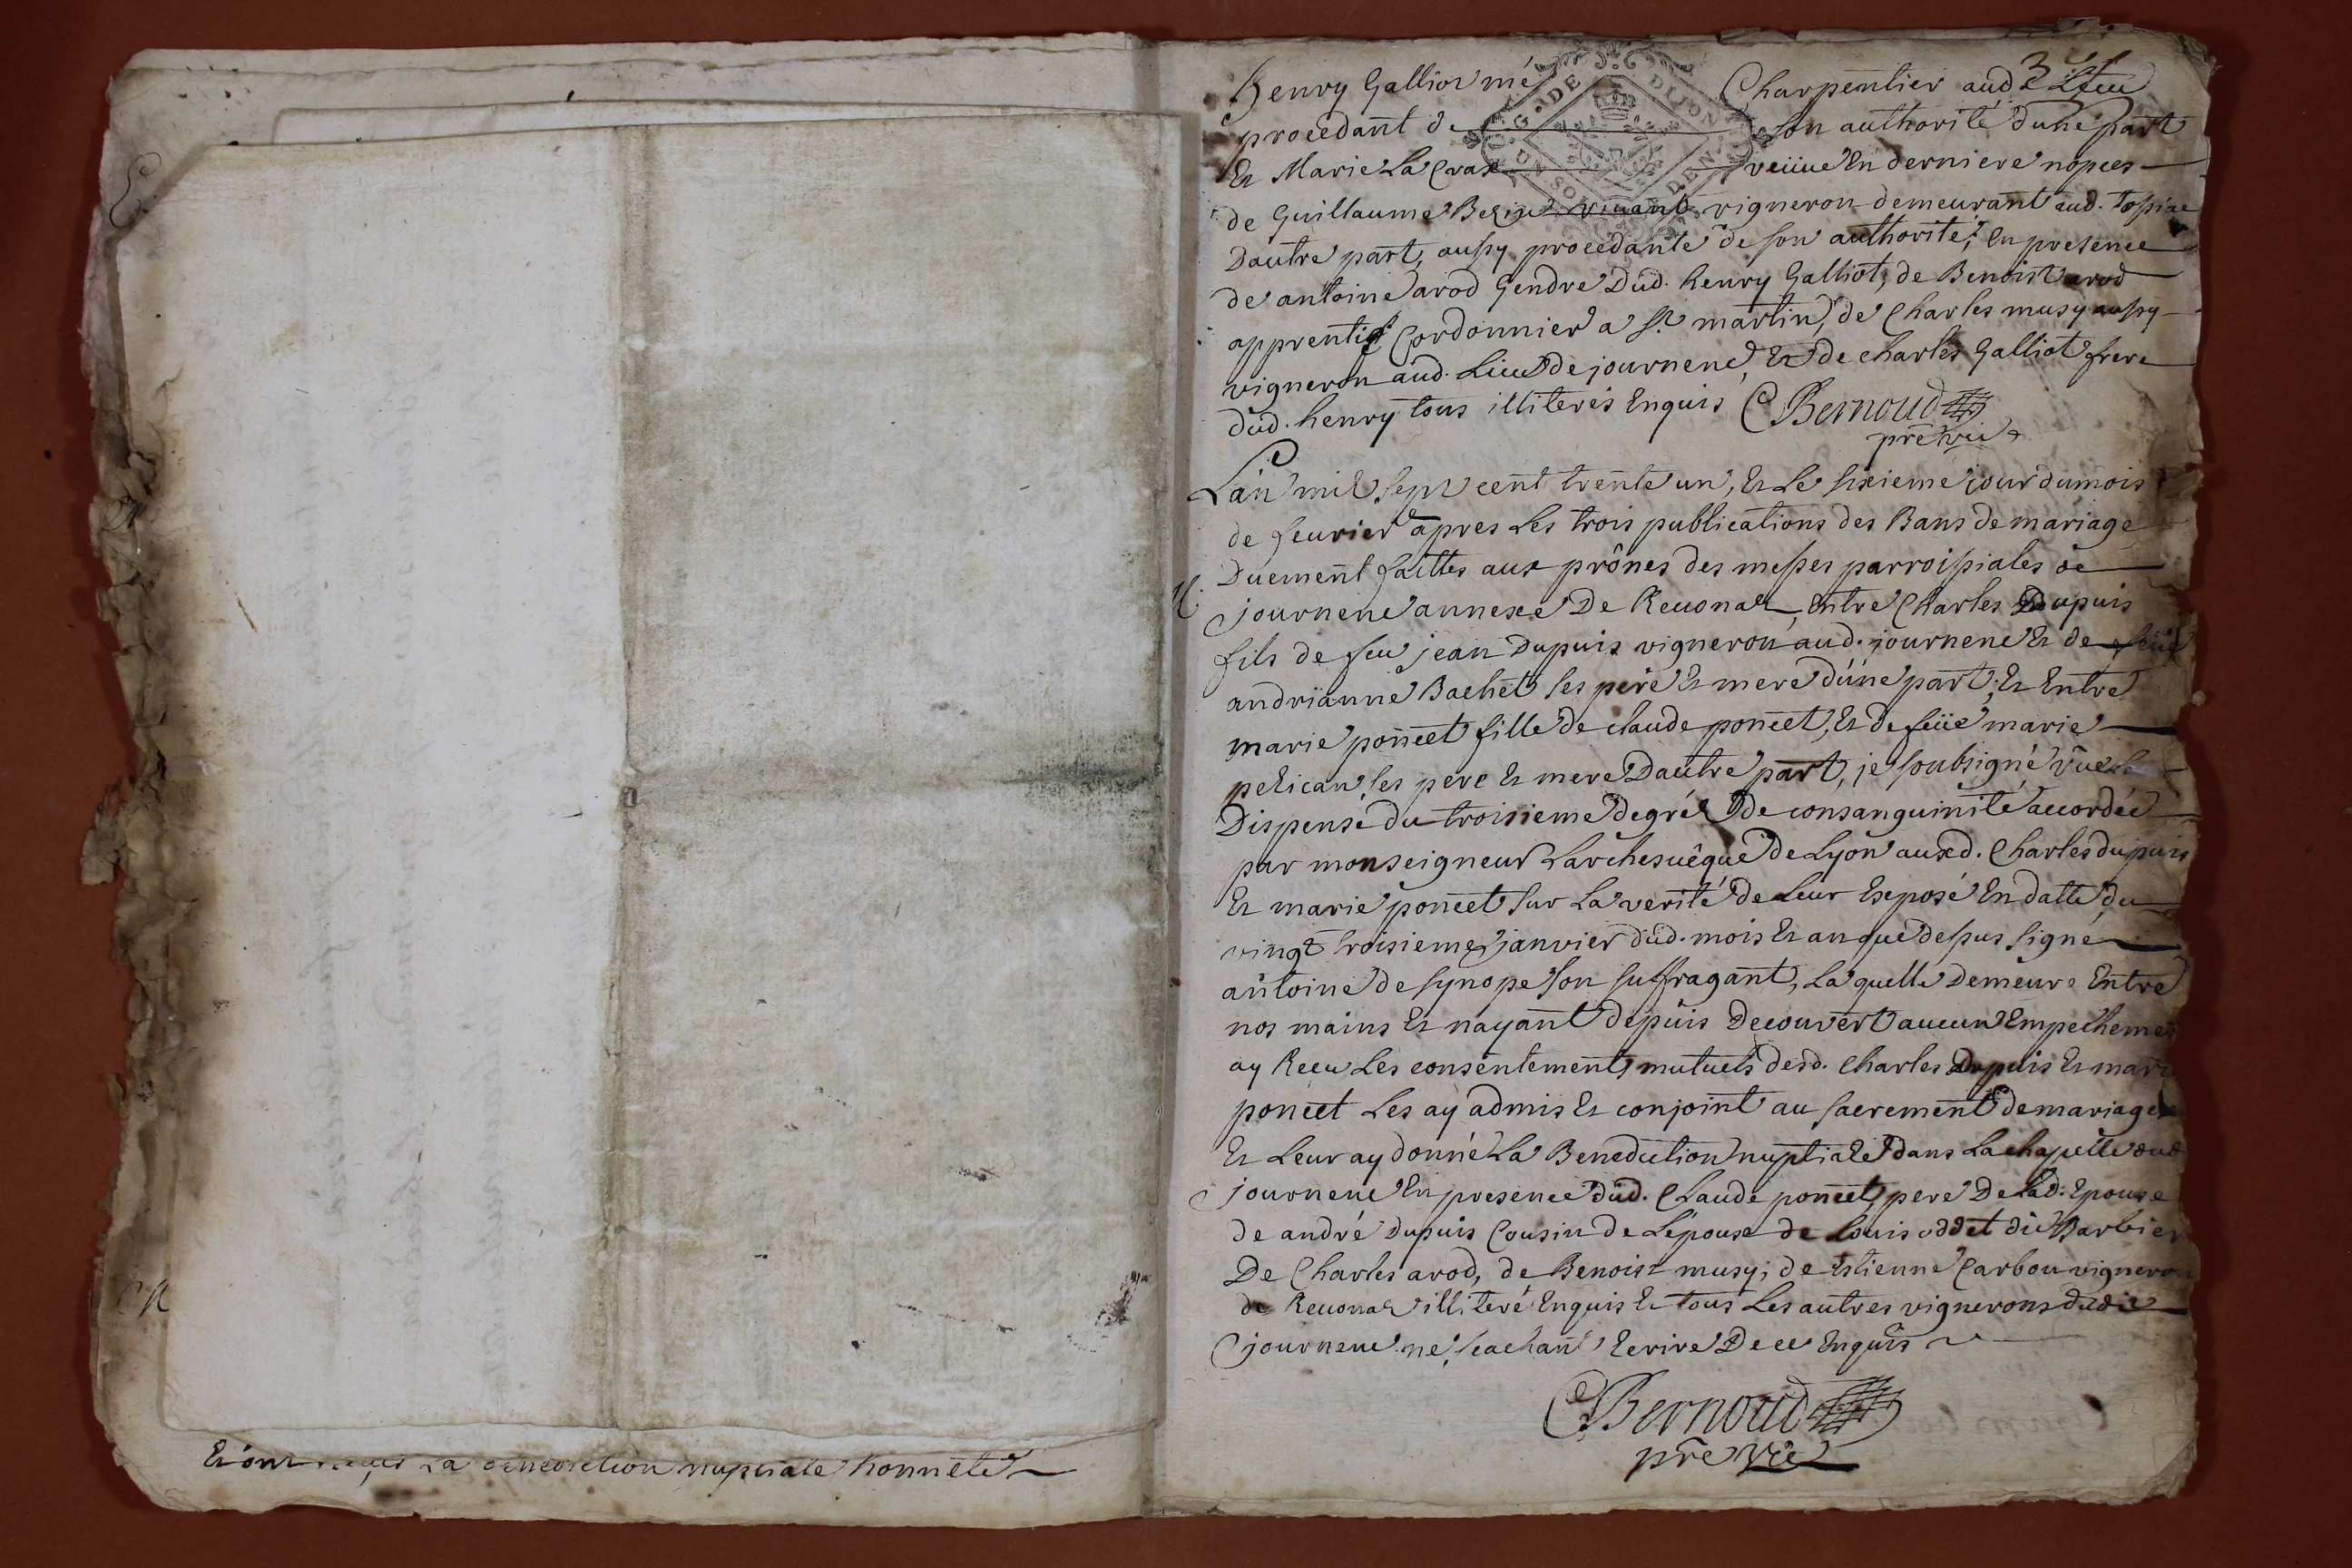 Et ont la benediction nuptiale honnête
Henry Galliot mé Charpentier aud. Lieu
procedant de son authorité dune part
Et Marie La Crax veüve En derniere nopces
de Guillaume vivant vigneron demeurant aud.
Dautre part, aussy procedante de son authorité, En presence
de antoine arod Gendre Dud. henry Galliot, de Benoist arod
apprentif Cordonnier a St. martin, de Charles musy aussy
vigneron aud. Lieu de journene, Et de charles Galliot frere
dud. henry tous illiterés Enquis C Bernoud
pre vic
Lan mil sept cent trente un, Et Le sixieme jour du mois
de feurier apres Les trois publications des Bans de mariage
Duement faittes aux prônes des messes parroissiales de
journene annexe De Reuonas, Entre Charles Dupuis
fils de feu jean Dupuis vigneron aud. journene Et de feüe
andrianne Bachet ses pere Et mere d'une part, Et Entre
marie poncet fille de claude poncet, Et de feüe marie
pelican, ses pere Et mere Dautre part, je soubsigné vüe La
Dispense du troisieme degré de consanguinité accordée
par monseigneur Larchesuêque de Lyon auxd. Charles dupuis
Et marie poncet sur La verité de Leur Exposé En datte du
vingt troisieme janvier dud. mois Et an que dessus signé
antoine de synope son suffragant, Laquelle Demeure Entre
nos mains Et nayant depuis Decouvert aucun Empecheme
ay Receu Les consentements mutuels desd. Charles Dupuis Et marie
poncet Les ay admis Et conjoint au sacrement de mariage
Et Leur ay donné La Benediction nuptiale dans La chapelle dud
journene En presence dud. Claude poncet, pere De Lad. Epouse
de andré Dupuis Cousin de Lépouse de Louis oddet dit Barbier
De Charles arod, de Benoist musy, de Estienne Carbon vigneron
de Reuonas illiteré Enquis Et tous Les autres vignerons dudit
journene ne scachant Ecrire De ce Enquis
C Bernoud
pre vic